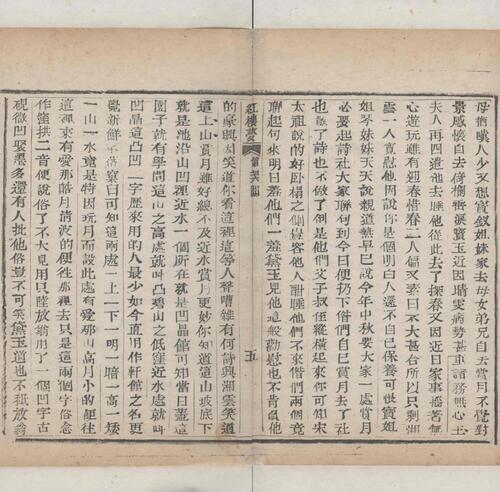 母猶嘆人少又想寳釵姐妹家去母女弟兄自去賞月不覺對
景感懷自去倚欄垂淚寳玉近因晴雯病勢甚重諸務無心王
夫人再四遣他去睡他從此去了探春又因近日家事惱著無
心遊玩雖有迎春惜春二人偏又素日不大甚合所以只剩湘
雲一人寛慰他因說你是個明白人還不自己保養可恨寳姐
姐琴妹妹天天說親道熱早巳說今年中秋要大家一處賞月
必要起詩社大家聯句到今日便扔下俗們自巳賞月去了社
也散了詩也不做了倒是他們父子叔侄縱橫起來你可知宋
太祖說的好卧榻之側豈容他人酣睡他們不來偺們兩個竟
聯起句來明日羞他們一羞黛玉見他這般勸慰也不肯負他
紅樓夢 第 回 五
的豪興因笑道你看這裡這等人聲嘈雜有何詩興湘雲笑道
這上山賞月雖好總不及近水賞月更妙你知道這山坡底下
就是池沿山凹裡近水一個所在就是凹晶館可知當日蓋這
園子就有學問這山之高處就叫凸碧山之低窪近水處就叫
凹晶這凸凹二字歷來用的人最少如今直用作軒館之名更
覺新鮮不落窠臼可知這兩處一上一下一明一暗一高一矮
一山一水竟是特因玩月而設此處有愛那山高月小的便往
這裡來有愛那皓月清波的便往那裡去只是這兩個字俗念
作窪拱二音便說俗了不大見用只陸放翁用了一個凹字古
硯微凹聚墨多還有人批他俗豈不可笑黛玉道也不只放翁